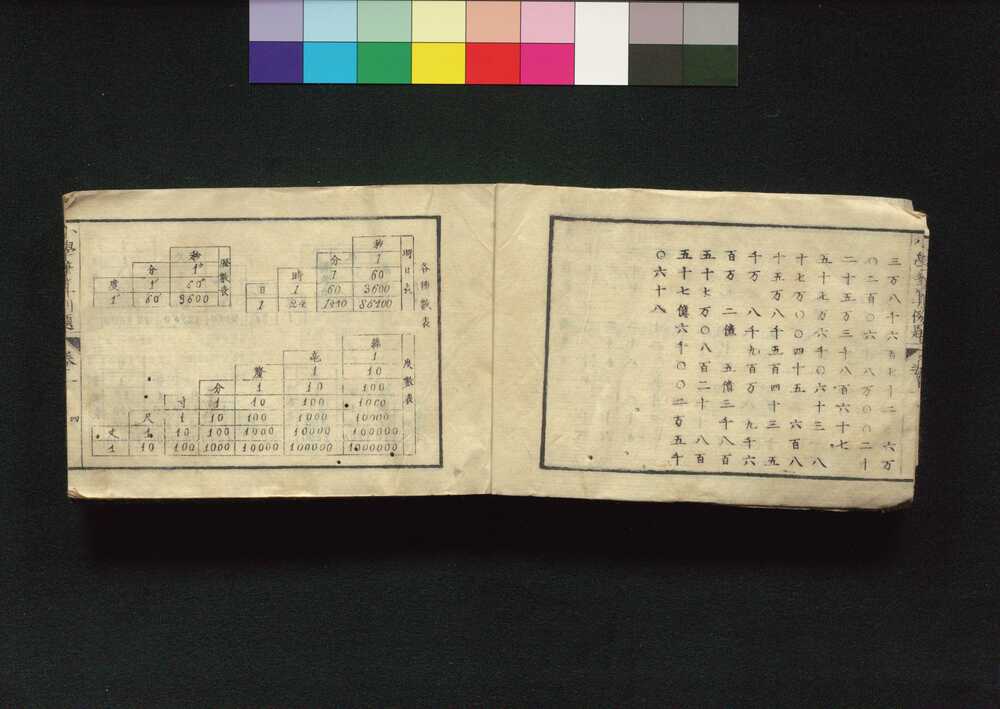 三万八千六百七十二　六万
〇二百〇六　八万〇〇二十
二十五万三千八百六十七
五十七万六千〇六十三　八
十七万〇〇四十五　六百八
十五万八千五百四十三　五
千万　八千九百万　九千六
百万　二億　五億三千八百
五十七万〇八百二十　八百
五十七億六千〇〇二万五千
〇六十八
各種數表
時日表
秒
分 1
時 1 60
日 1 60 3600
1 24 1440 86400
數表
秒
分 1"
度 1' 60"
1° 60' 3600
度數表
絲
毫 1
釐 1 10
分 1 10 100
寸 1 10 100 1000
尺 1 10 100 1000 10000
丈 1 10 100 1000 10000 100000
1 10 100 1000 10000 100000 1000000
四